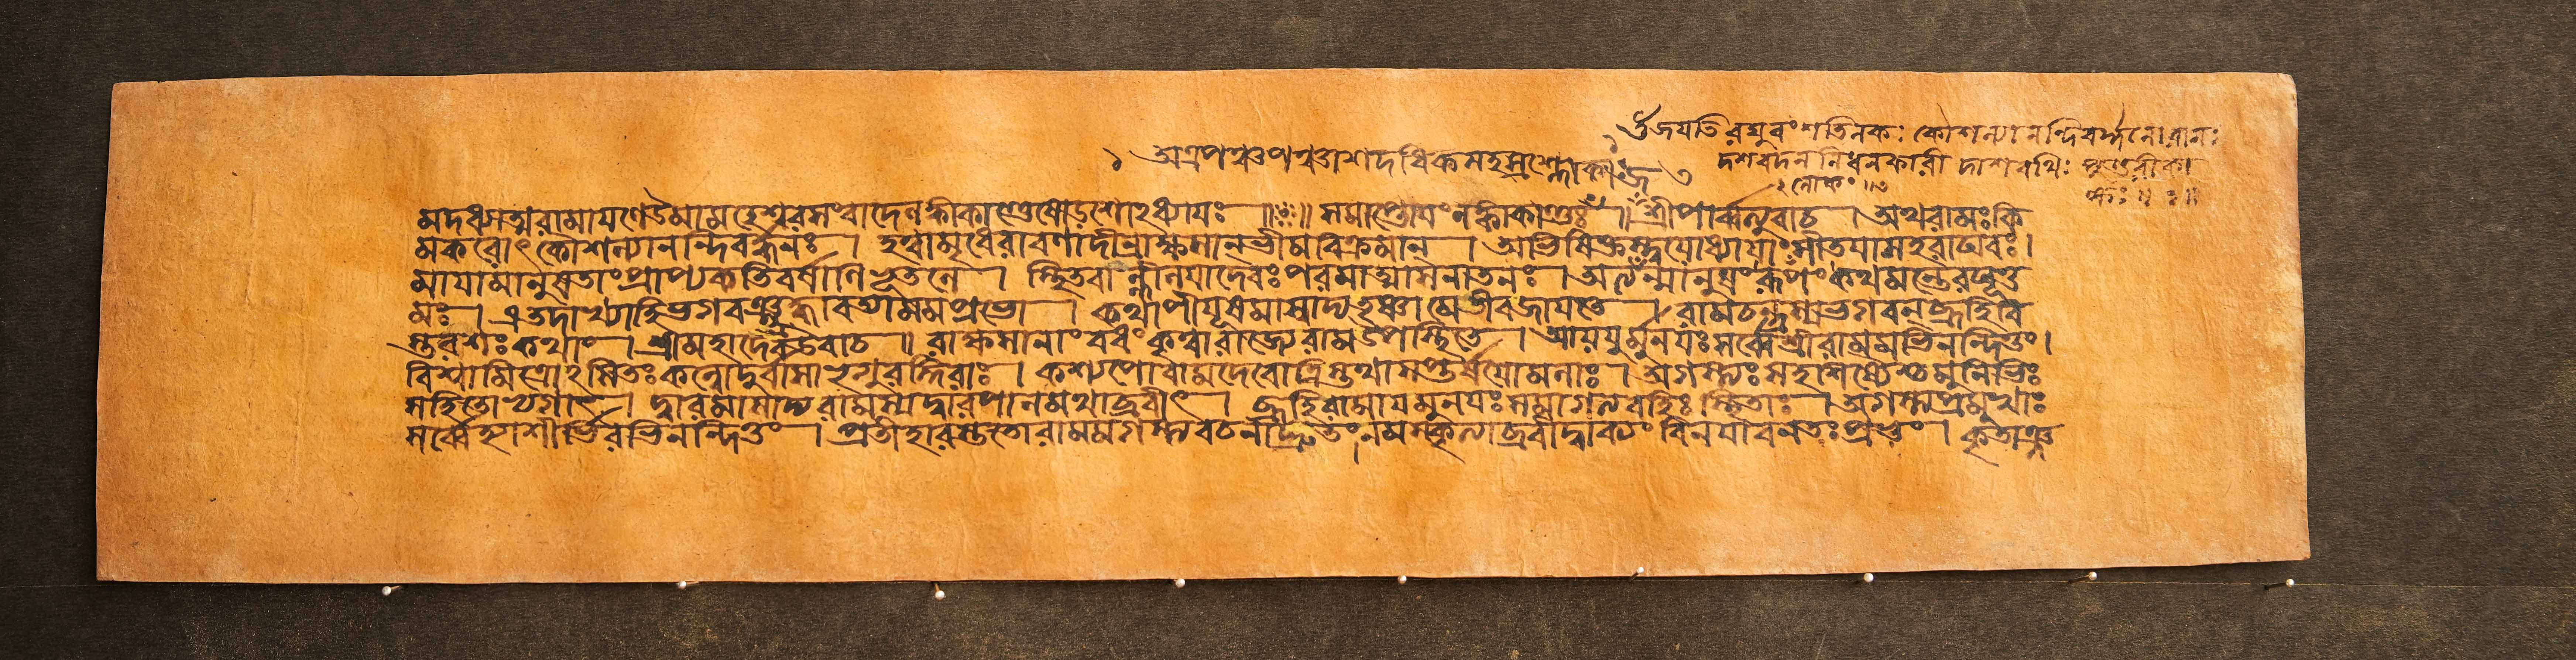 জয়তি রঘুবংশতিলকঃ কৌশল্যানন্দিবর্দ্ধনো রামঃ
অত্র পঞ্চপঞ্চাশদধিকসহস্রশ্লোকাঃ
দশবদননিধনকারী দাশরথিঃ পুণ্ডরীকা
শ্লোকঃ ॥
ক্ষঃ ॥ ০ ॥
মদধ্যাত্মরামায়ণেউমামহেশ্বরসংবাদেলঙ্কাকাণ্ডেষোড়শোঽধ্যায়ঃ ॥ ০ ॥ সমাপ্তোয়ংলঙ্কাকাণ্ডঃ ॥ শ্রীপার্ব্বত্যুবাচ । অথরামঃকি
মকরোৎকৌশল্যানন্দিবর্দ্ধনঃ । হত্বামৃধেরাবণাদীন্রাক্ষসান্ভীমবিক্রমান্ । অভিষিক্তস্ত্বযোধ্যায়াংসীতয়াসহরাঘবঃ ।
মায়ামানুষতাংপ্রাপ্যকতিবর্ষাণিভূতলে । স্থিতবান্লীলয়াদেবঃপরমাত্মাসনাতনঃ । অত্যজন্মানুষংরূপংকথমন্তেরঘূত্ত
মঃ । এতদাখ্যাহিভগবঞ্ছ্রদ্দধত্যামমপ্রভো । কথাপীয়ূষমাস্বাদ্যতৃষ্ণামেতীবজায়তে । রামচন্দ্রস্যভগবন্ব্রূহিবি
স্তরশঃকথাং । শ্রীমহাদেবউবাচ ॥ রাক্ষসানাংবধংকৃত্বারাজ্যেরামউপস্থিতে । আয়যুর্মুনয়ঃসর্ব্বেশ্রীরামমভিনন্দিতুং ।
বিশ্বামিত্রোঽসিতঃকণ্বোদুর্বাসাভৃগুরঙ্গিরাঃ । কশ্যপোবামদেবোত্রিস্তথাসপ্তর্ষয়োমলাঃ । অগস্ত্যঃসহশিষ্যৈশ্চমুনিভিঃ
সহিতোভ্যগাৎ । দ্বারমাসাদ্যরামস্যদ্বারপালমথাব্রবীৎ । ব্রূহিরামায়মুনয়ঃসমাগত্যবহিঃস্থিতাঃ । অগস্ত্যপ্রমুখাঃ
সর্ব্বেআশীর্ভিরভিনন্দিতুং । প্রতীহারস্ততোরামমগস্ত্যবচনাদ্দ্রুতং । নমস্কৃত্যাব্রবীদ্বাক্যংবিনয়াবনতঃপ্রভুং । কৃতাঞ্জ